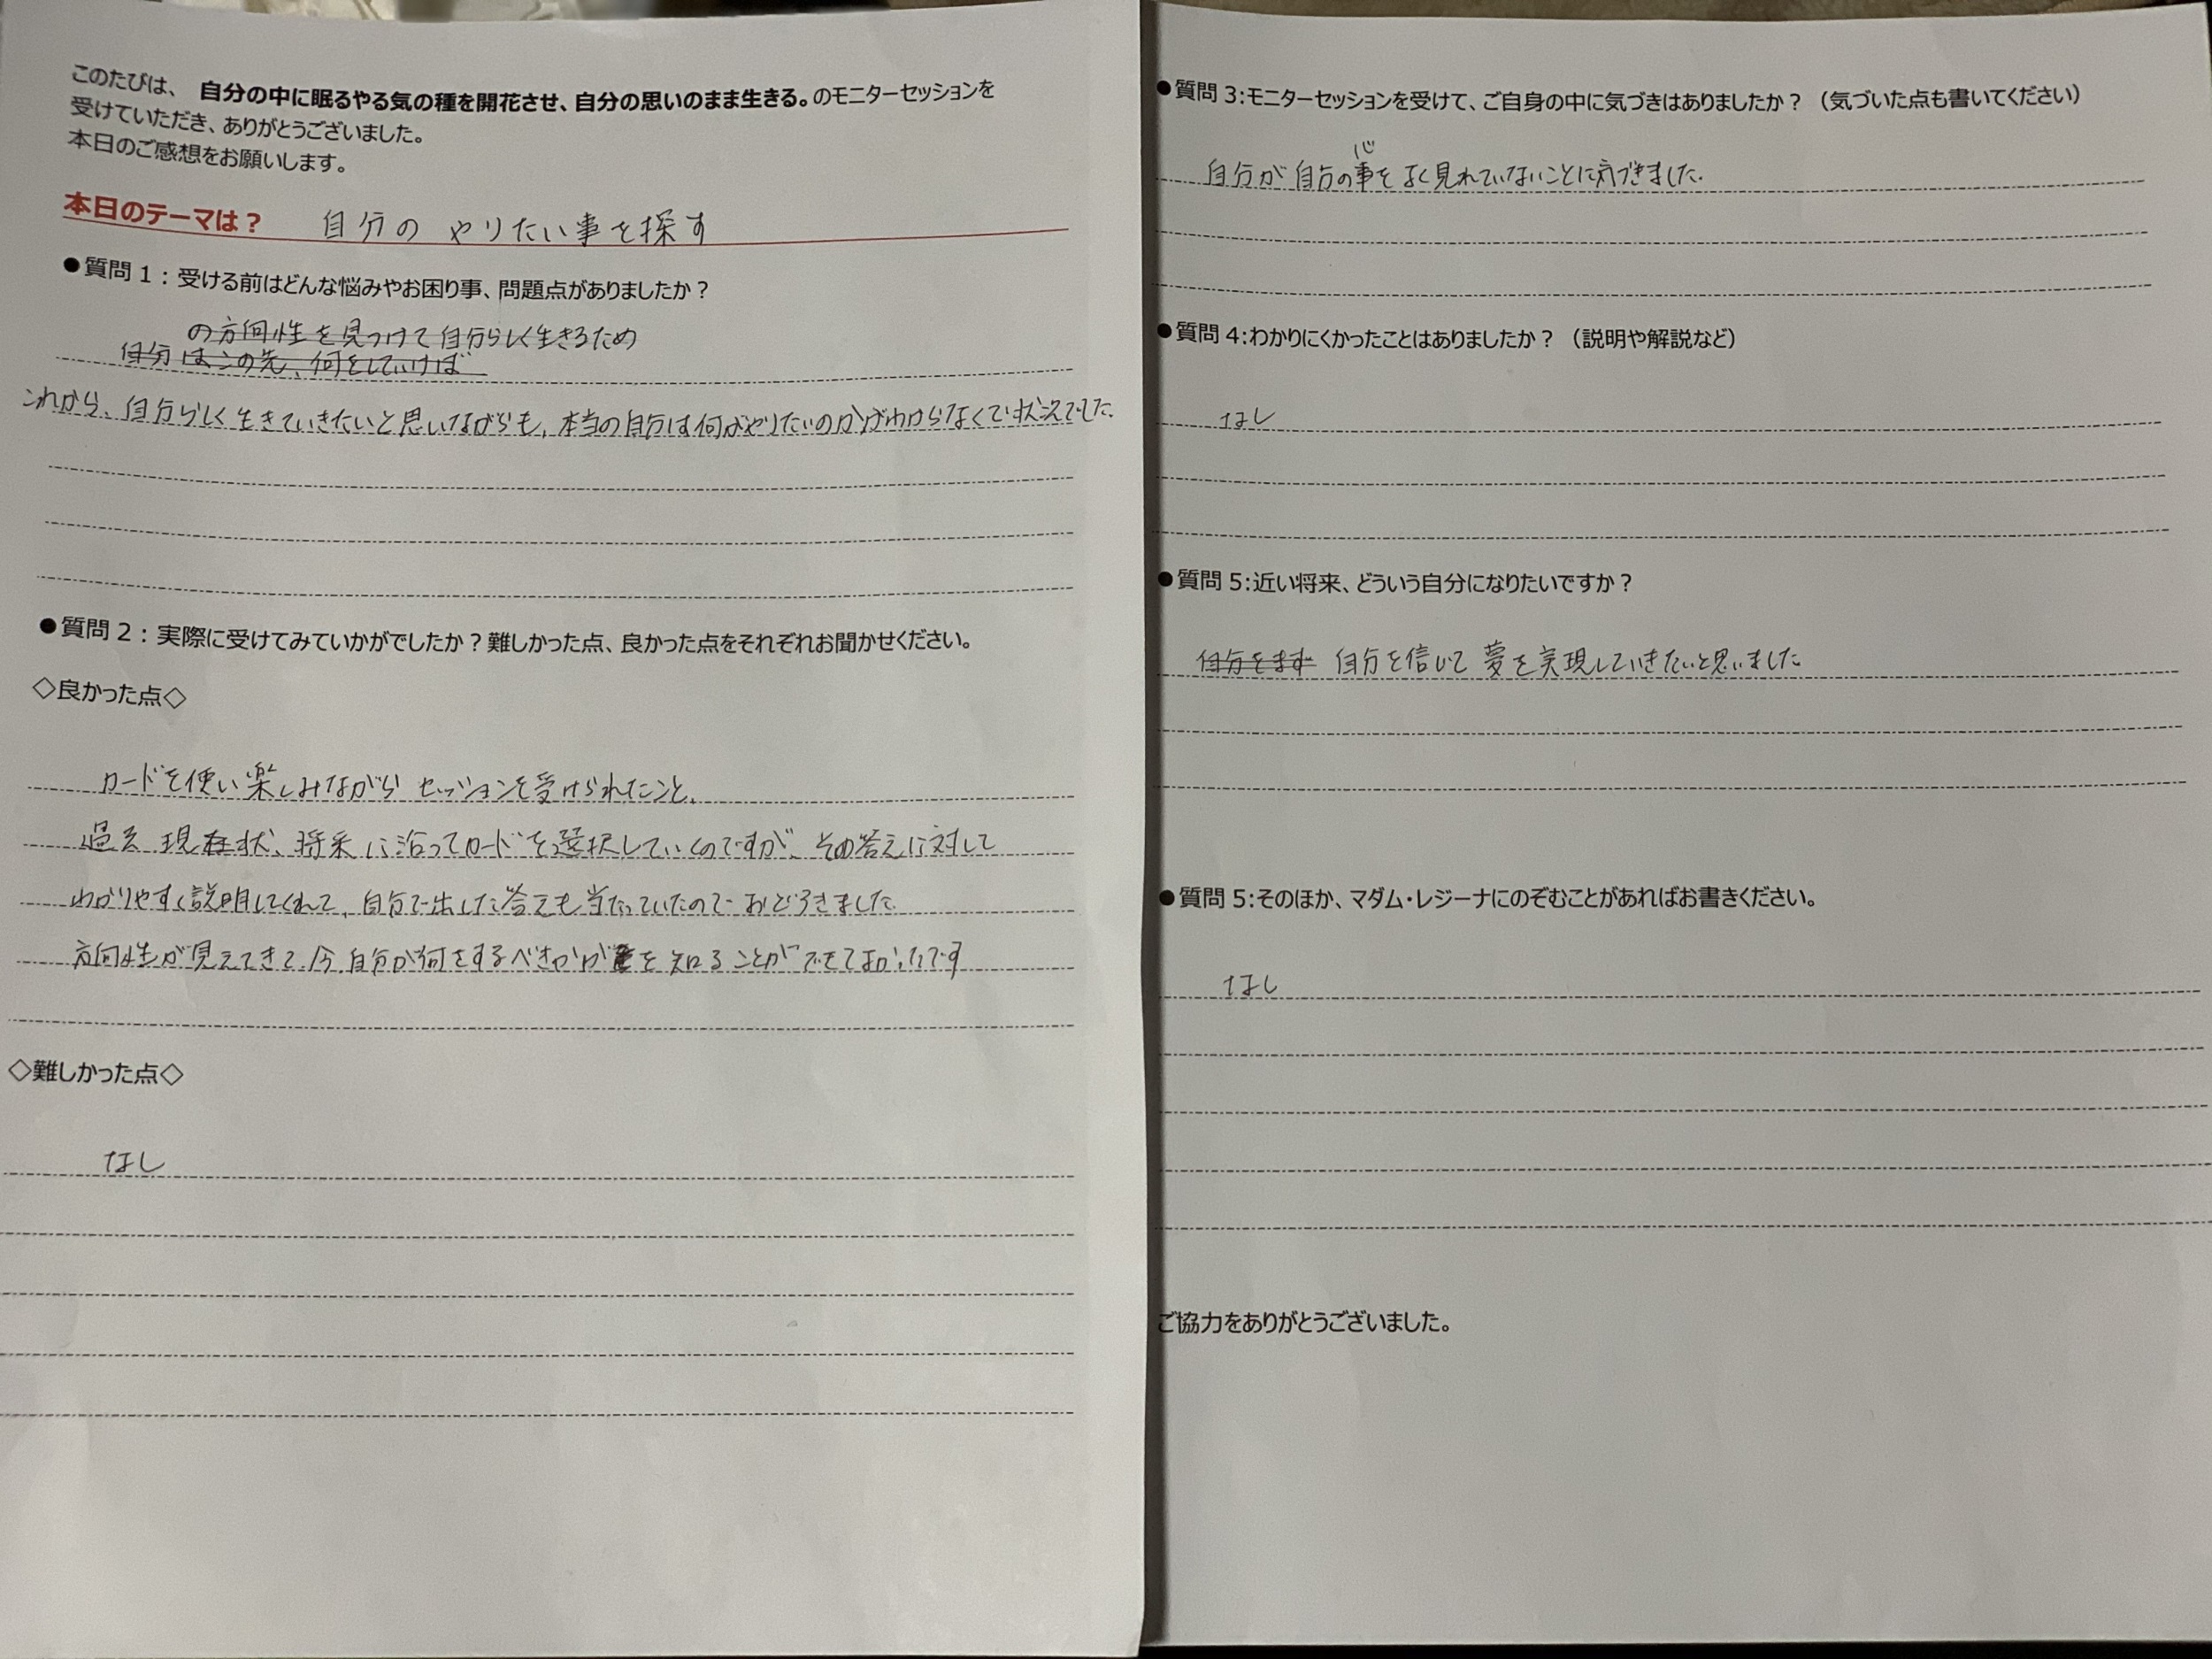 このたびは、 自分の中に眠るやる気の種を開花させ、自分の思いのまま生きる。のモニターセッションを
受けていただき、ありがとうございました。
本日のご感想をお願いします。
本日のテーマは？ 自分の やりたい事を探す
●質問１：受ける前はどんな悩みやお困り事、問題点がありましたか？
の方向性を見つけて自分らしく生きるため
自分はこの先、何をしていけば
これから、自分らしく生きていきたいと思いながらも、本当の自分は何がやりたいのかがわからなくて状況でした。
●質問２：実際に受けてみていかがでしたか？難しかった点、良かった点をそれぞれお聞かせください。
◇良かった点◇
カードを使い楽しみながら セッションを受けられたこと、
過去 現在状、将来に沿ってカードを選択していくのですが、その答えに対して
わかりやすく説明してくれて、自分で出した答えも当たっていたので おどろきました
方向性が見えてきて、今、自分が何をするべきかがを 知ることができてよかったです
◇難しかった点◇
なし
●質問 3:モニターセッションを受けて、ご自身の中に気づきはありましたか？（気づいた点も書いてください）
心
自分が自分の事をよく見れていないことに気づきました.
●質問 4:わかりにくかったことはありましたか？（説明や解説など）
なし
●質問 5:近い将来、どういう自分になりたいですか？
自分をまず 自分を信じて 夢を実現していきたいと思いました
●質問 5:そのほか、マダム・レジーナにのぞむことがあればお書きください。
なし
ご協力をありがとうございました。